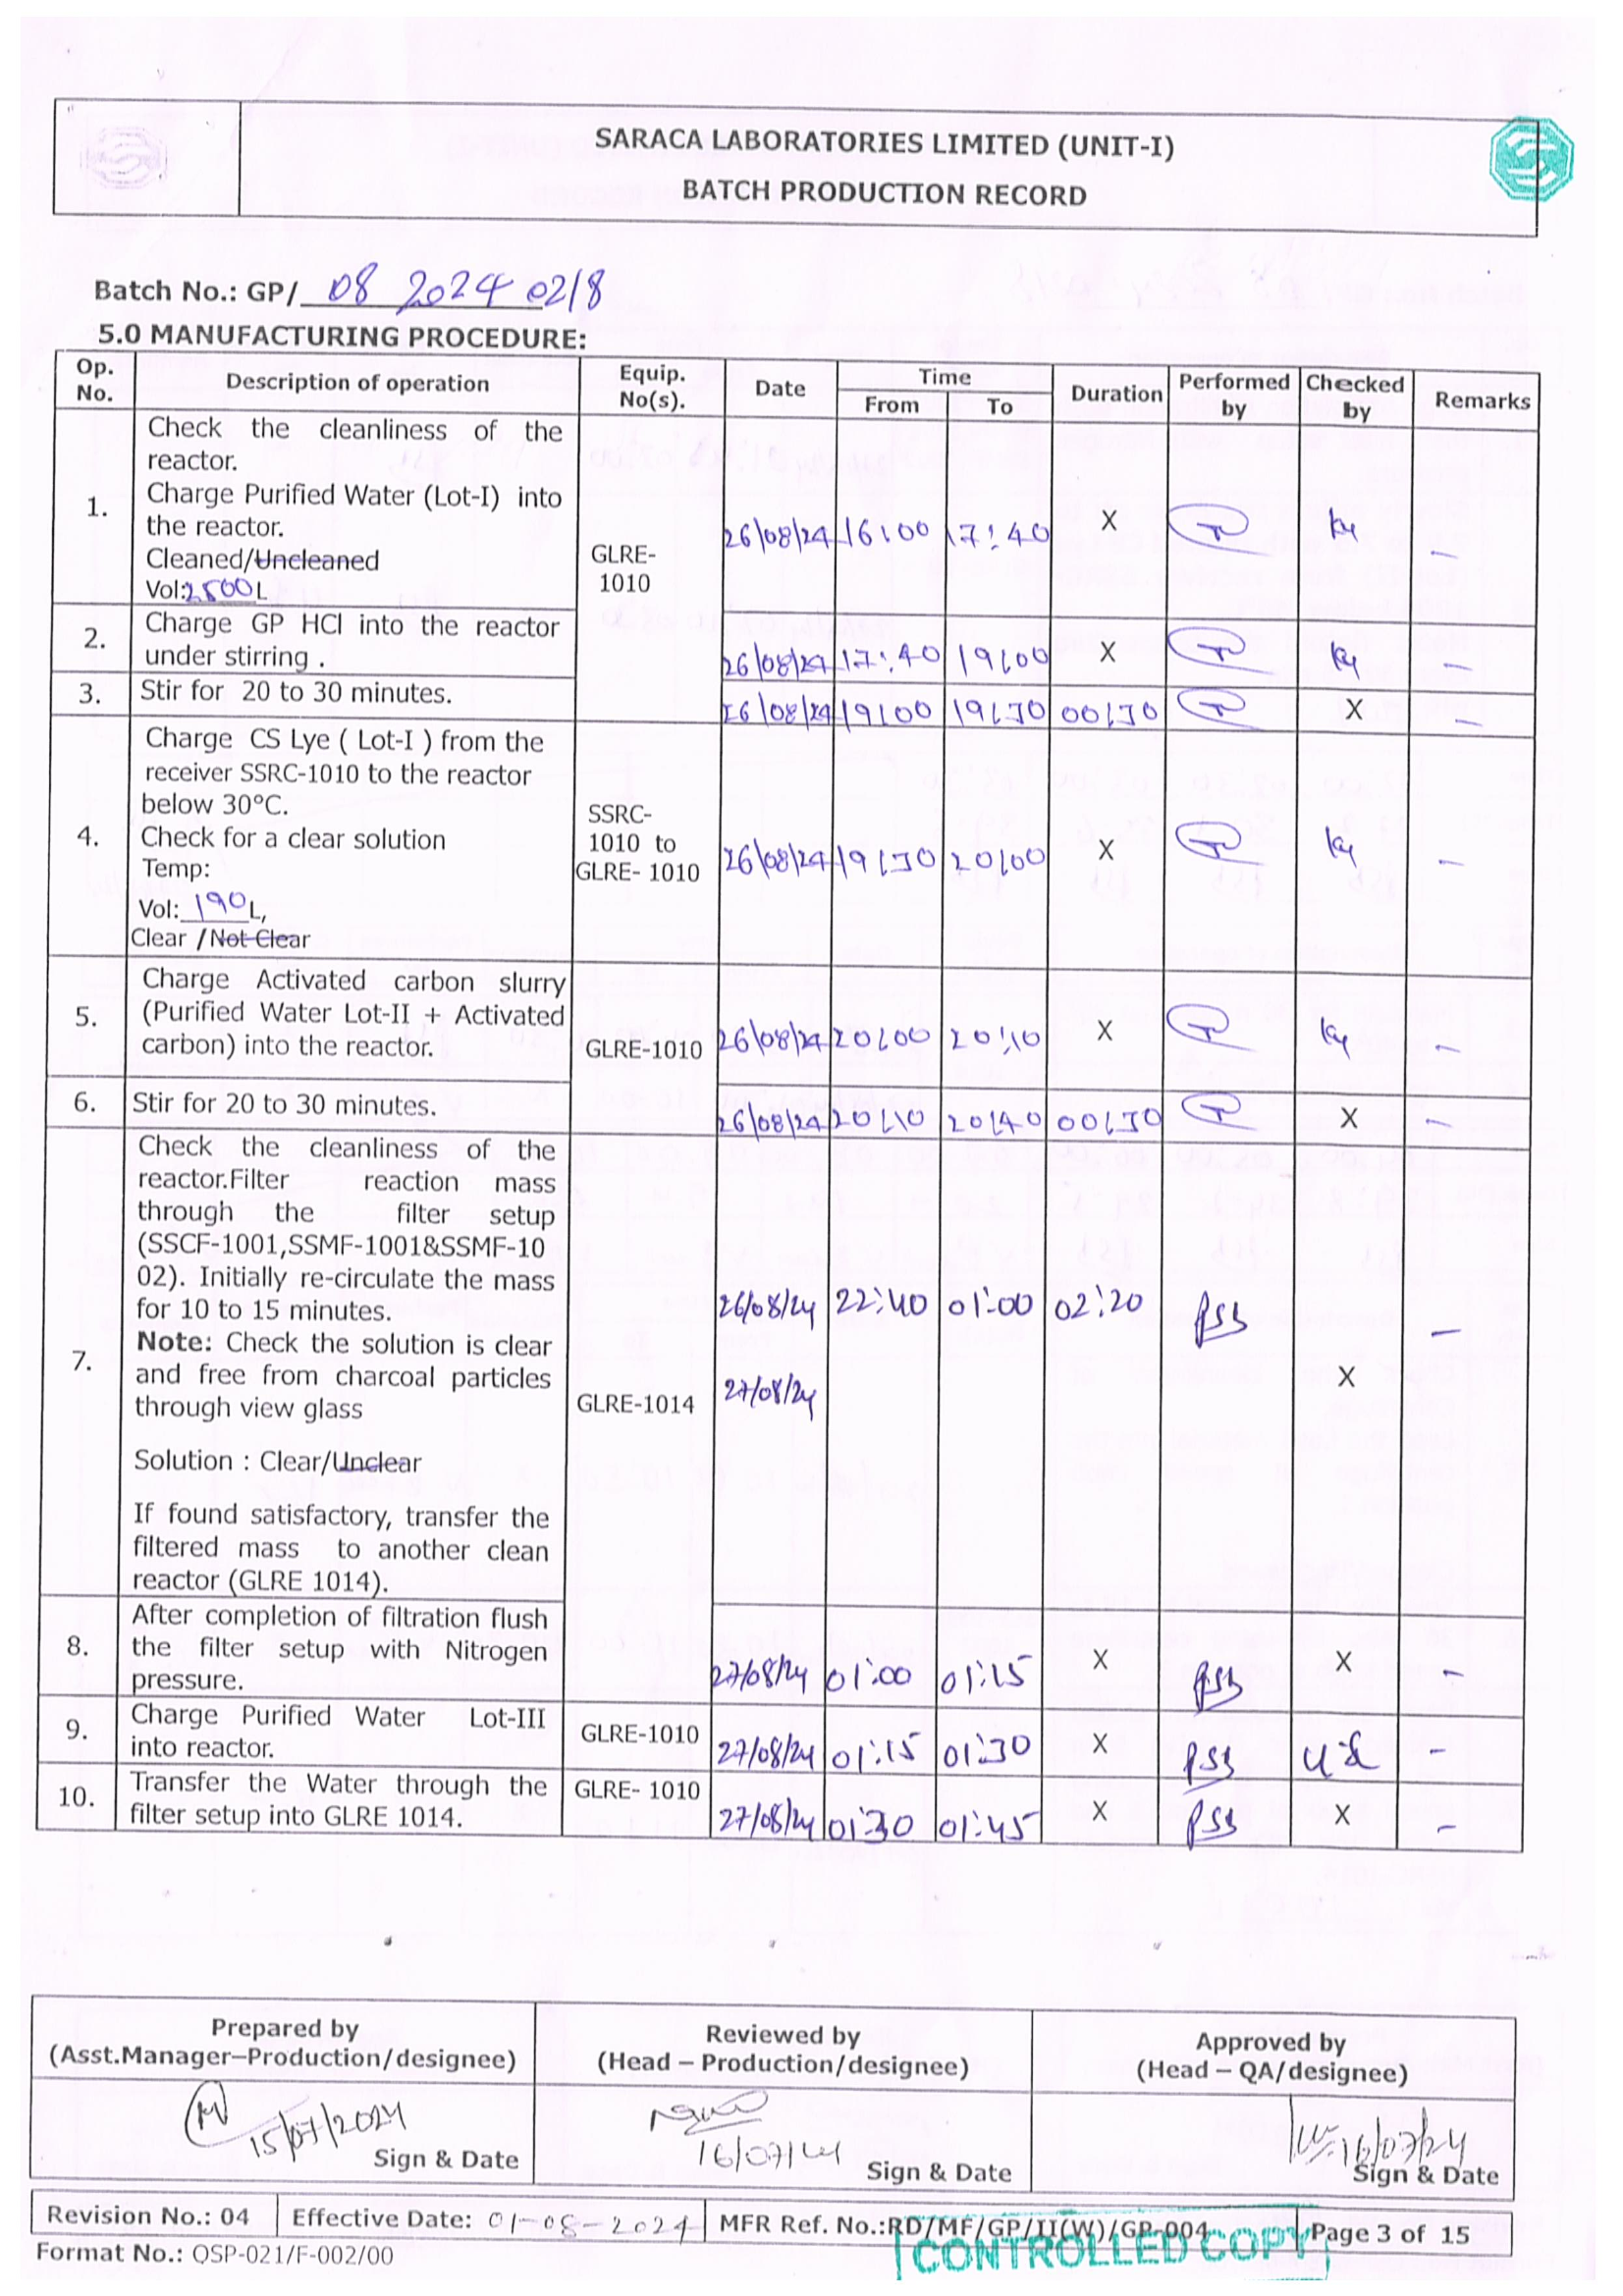 SARACA LABORATORIES LIMITED (UNIT-I)
BATCH PRODUCTION RECORD
Batch No.: GP/ 08 2024 0218
5.0 MANUFACTURING PROCEDURE:
Op. No. Description of operation Equip. No(s). Date Time From To Duration Performed by Checked by Remarks
1. Check the cleanliness of the
reactor.
Charge Purified Water (Lot-I) into
the reactor.
Cleaned/Uncleaned
Vol:2500L
GLRE-
1010
26/08/24 16:00 17:40 X –
2. Charge GP HCl into the reactor
under stirring .
26/08/24 17:40 19:00 X –
3. Stir for 20 to 30 minutes.
26/08/24 19:00 19:30 00:30 X –
4. Charge CS Lye ( Lot-I ) from the
receiver SSRC-1010 to the reactor
below 30°C.
Check for a clear solution
Temp:
Vol: 190 L,
Clear /Not Clear
SSRC-
1010 to
GLRE- 1010
26/08/24 19:30 20:00 X –
5. Charge Activated carbon slurry
(Purified Water Lot-II + Activated
carbon) into the reactor.
GLRE-1010
26/08/24 20:00 20:10 X –
6. Stir for 20 to 30 minutes.
26/08/24 20:10 20:40 00:30 X –
7. Check the cleanliness of the
reactor.Filter reaction mass
through the filter setup
(SSCF-1001,SSMF-1001&SSMF-10
02). Initially re-circulate the mass
for 10 to 15 minutes.
Note: Check the solution is clear
and free from charcoal particles
through view glass
Solution : Clear/Unclear
If found satisfactory, transfer the
filtered mass to another clean
reactor (GLRE 1014).
GLRE-1014
26/08/24 22:40 01:00 02:20 –
27/08/24 X
8. After completion of filtration flush
the filter setup with Nitrogen
pressure.
27/08/24 01:00 01:15 X X –
9. Charge Purified Water Lot-III
into reactor.
GLRE-1010
27/08/24 01:15 01:30 X –
10. Transfer the Water through the
filter setup into GLRE 1014.
GLRE- 1010
27/08/24 01:30 01:45 X X –
Prepared by
(Asst.Manager–Production/designee)
15/07/2024
Sign & Date
Reviewed by
(Head – Production/designee)
16/07/24
Sign & Date
Approved by
(Head – QA/designee)
16/07/24
Sign & Date
Revision No.: 04 Effective Date: 01-08-2024 MFR Ref. No.:RD/MF/GP/II(W)/GP-004 Page 3 of 15
Format No.: QSP-021/F-002/00
CONTROLLED COPY